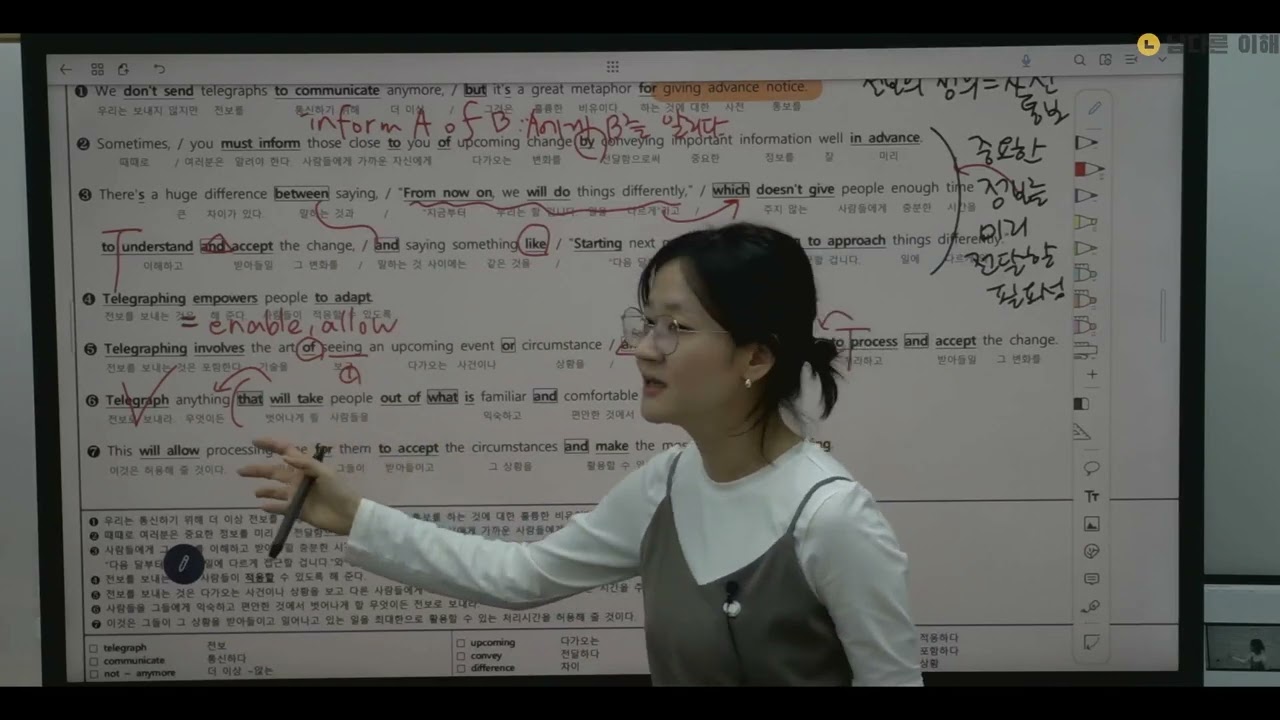 남다른 이해
❶ We don't send telegraphs to communicate anymore, / but it's a great metaphor for giving advance notice.
우리는 보내지 않지만 전보를 통신하기 위해 더 이상 / 그것은 훌륭한 비유이다 하는 것에 대한 사전 통보를
전보의 정의 = 사전 통보
inform A of B : A에게 B를 알리다
❷ Sometimes, / you must inform those close to you of upcoming change by conveying important information well in advance.
때때로 / 여러분은 알려야 한다 사람들에게 가까운 자신에게 다가오는 변화를 전달함으로써 중요한 정보를 잘 미리
중요한
정보를
미리
전달할
필요성
❸ There's a huge difference between saying, / "From now on, we will do things differently," / which doesn't give people enough time
큰 차이가 있다. 말하는 것과 / "지금부터 우리는 할 겁니다 일을 다르게"라고 / 주지 않는 사람들에게 충분한 시간을
to understand and accept the change, / and saying something like / "Starting next to approach things differently.
이해하고 받아들일 그 변화를 / 말하는 것 사이에는 같은 것을 / "다음 할 겁니다. 일에
❹ Telegraphing empowers people to adapt.
전보를 보내는 것은 해 준다. 사람들이 적응할 수 있도록
= enable, allow
❺ Telegraphing involves the art of seeing an upcoming event or circumstance / to process and accept the change.
전보를 보내는 것은 포함한다. 기술을 보고 다가오는 사건이나 상황을 / 받아들일 그 변화를
①
❻ Telegraph anything that will take people out of what is familiar and comfortable
전보로 보내라. 무엇이든 벗어나게 할 사람들을 익숙하고 편안한 것에서
❼ This will allow processing for them to accept the circumstances and make the
이것은 허용해 줄 것이다. 그들이 받아들이고 그 상황을 활용할 수
❶ 우리는 통신하기 위해 더 이상 전보를 통보를 하는 것에 대한 훌륭한
❷ 때때로 여러분은 중요한 정보를 미리 전달함 에게 가까운
❸ 사람들에게 그 이해하고 받아들일 충분한
"다음 달부터 일에 다르게 접근할 겁니다."
❹ 전보를 보내는 사람들이 적응할 수 있도록 해 준다.
❺ 전보를 보내는 것은 다가오는 사건이나 상황을 보고 다른 사람들에게
❻ 사람들을 그들에게 익숙하고 편안한 것에서 벗어나게 할 무엇이든 전보로
❼ 이것은 그들이 그 상황을 받아들이고 일어나고 있는 일을 최대한으로 활용할 수 있는 처리시간을 허용해 줄 것이다.
telegraph 전보 upcoming 다가오는 적응하다
communicate 통신하다 convey 전달하다 포함하다
not ~ anymore 더 이상 ~않는 difference 차이 상황